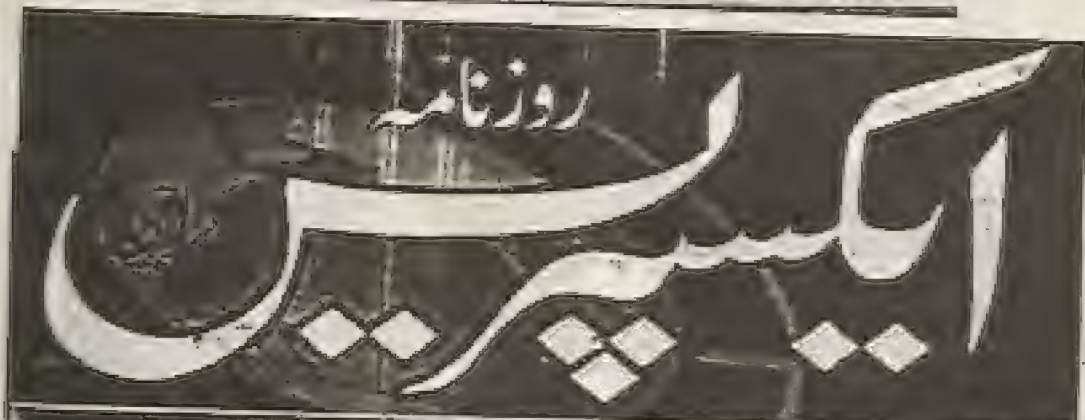 روزنامہ
ایکسپریس